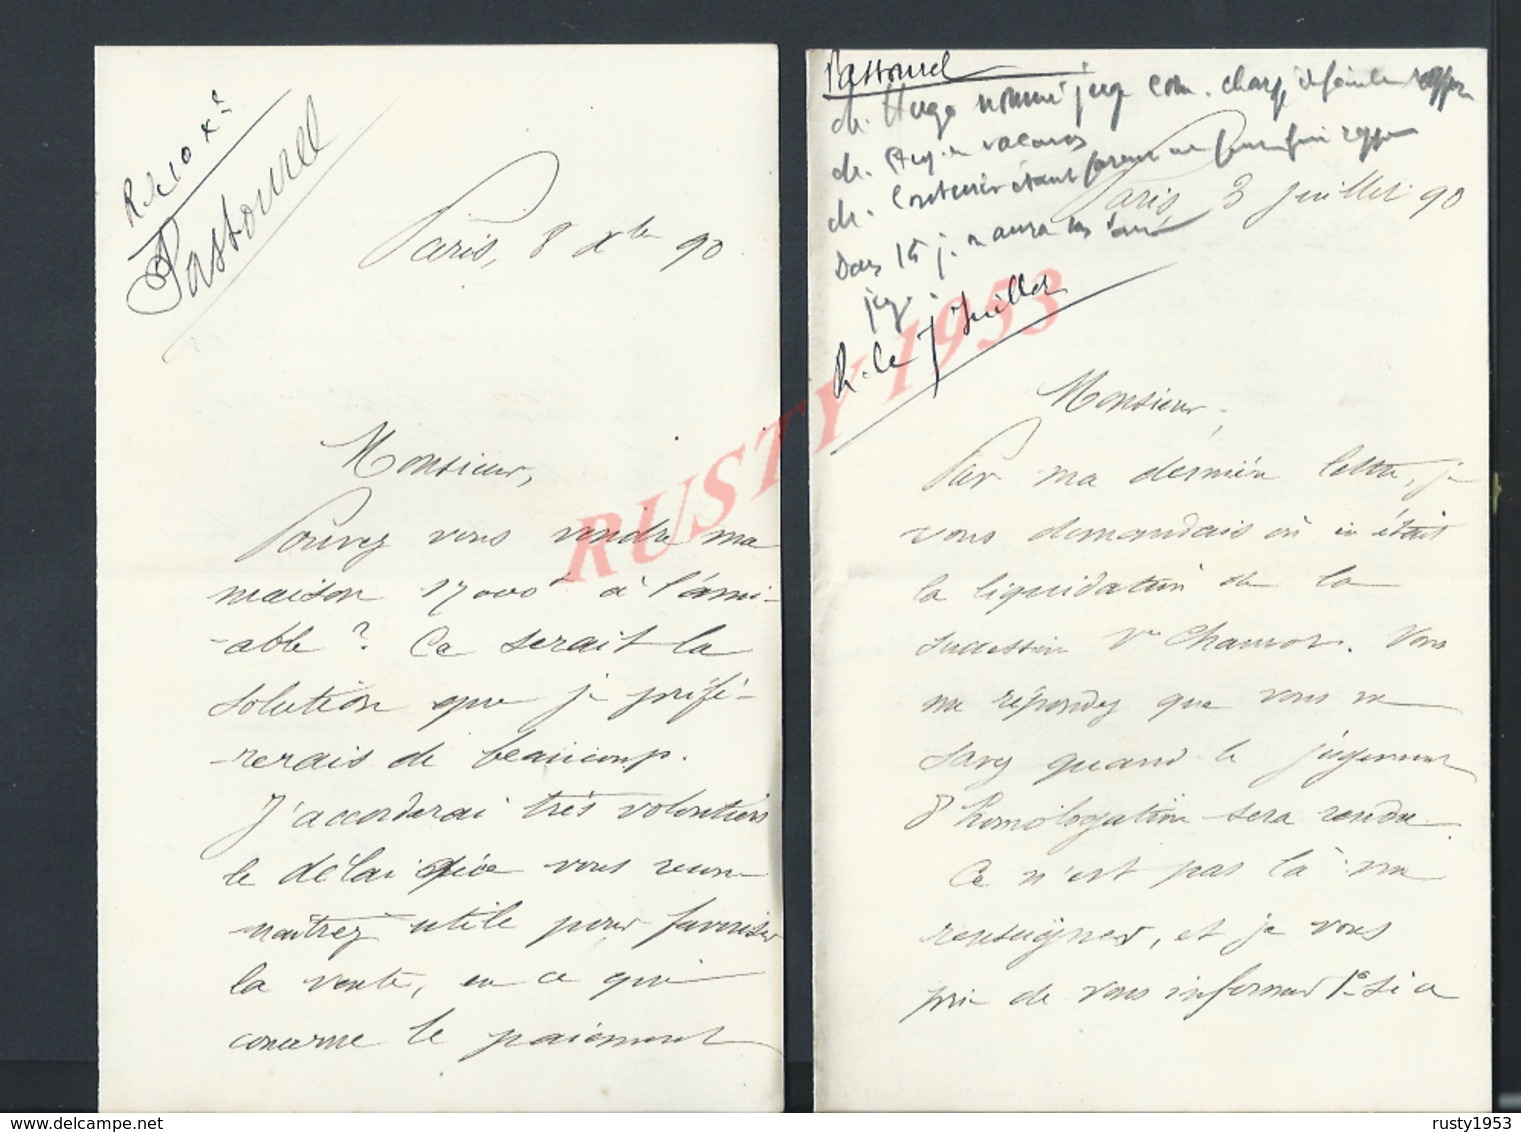 R. le 10 Xe
Passourel
Paris, 8 Xbre 90
Monsieur,
Pouvez vous vendre ma
maison 17000f à l'ami-
-able? Ce serait la
solution que je préfé-
-rerais de beaucoup.
J'accorderai très volontiers
le délai que vous recon-
naîtrez utile pour favoriser
la vente, en ce qui
concerne le paiement
Passourel
Mr. Hugo nommé juge com. chargé
de
Mr. étant
Dans 15 j. n aura
juge.
R. le 7 Juillet
Paris, 3 Juillet 90
Monsieur,
Par ma dernière lettre, je
vous demandais où en était
la liquidation de la
succession Ve. Vous
me répondez que vous ne
savez quand le jugement
d'homologation sera rendu.
Ce n'est pas là me
renseigner, et je vous
prie de vous informer 1° si ce
RUSTY 1953
rusty1953